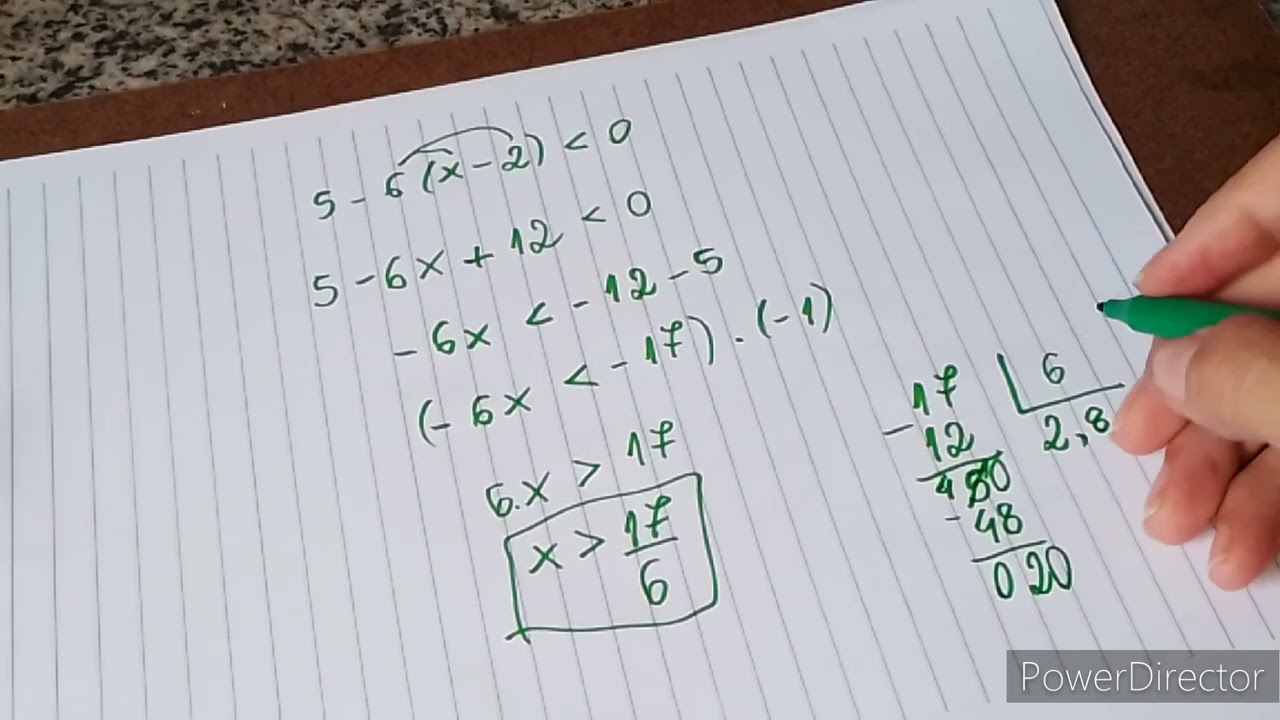 5 - 6 (x - 2) < 0
5 - 6x + 12 < 0
- 6x < - 12 - 5
(- 6x < - 17) . (- 1)
6.x > 17
x > 17/6
17 6
- 12 2,8
50
- 48
020
PowerDirector